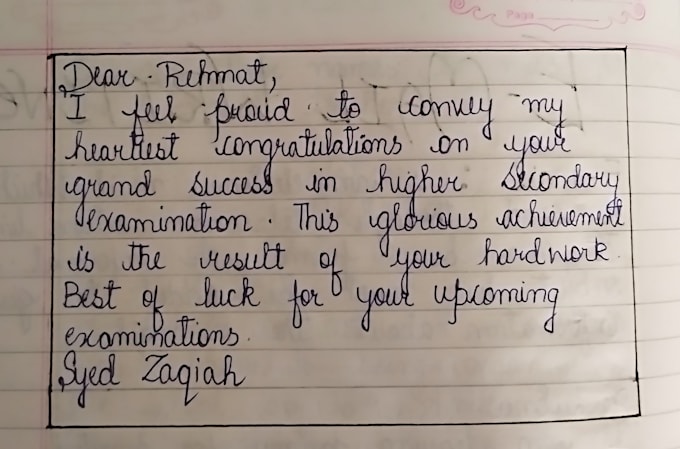 Page
Dear Rehmat,
I feel proud to convey my
heartiest congratulations on your
grand success in higher secondary
examination. This glorious achievement
is the result of your hardwork.
Best of luck for your upcoming
examinations.
Syed Zaqiah